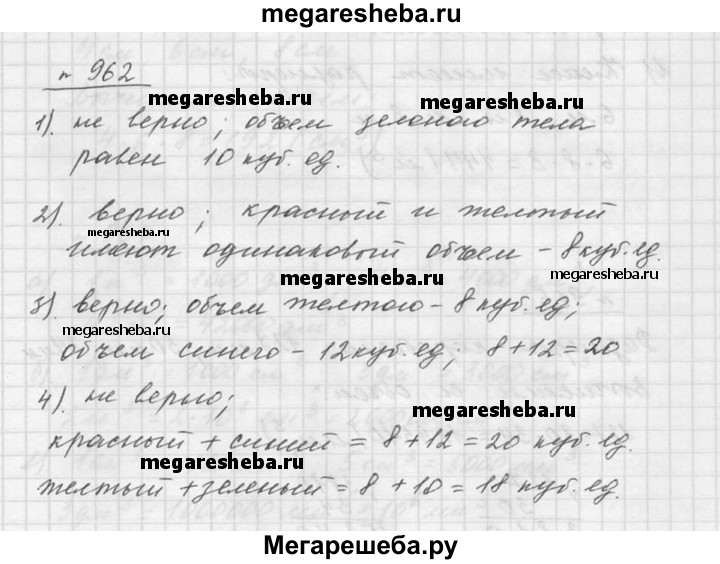 megaresheba.ru
n 962
megaresheba.ru megaresheba.ru
1). не верно; объем зеленого тела
равен 10 куб. ед.
2). верно; красный и желтый
megaresheba.ru
имеют одинаковый объем - 8 куб. ед.
megaresheba.ru megaresheba.ru
3). верно; объем желтого - 8 куб. ед;
megaresheba.ru
объем синего - 12 куб. ед; 8 + 12 = 20
4). не верно;
megaresheba.ru
красный + синий = 8 + 12 = 20 куб. ед.
megaresheba.ru
желтый + зеленый = 8 + 10 = 18 куб. ед.
Мегарешеба.ру